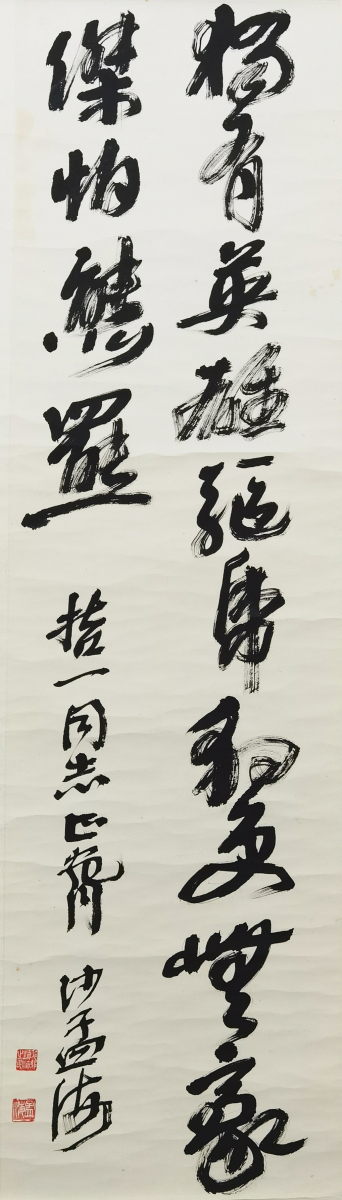 獨有英雄驅虎豹更無豪
傑怕熊羆 一同志正腕 沙孟海